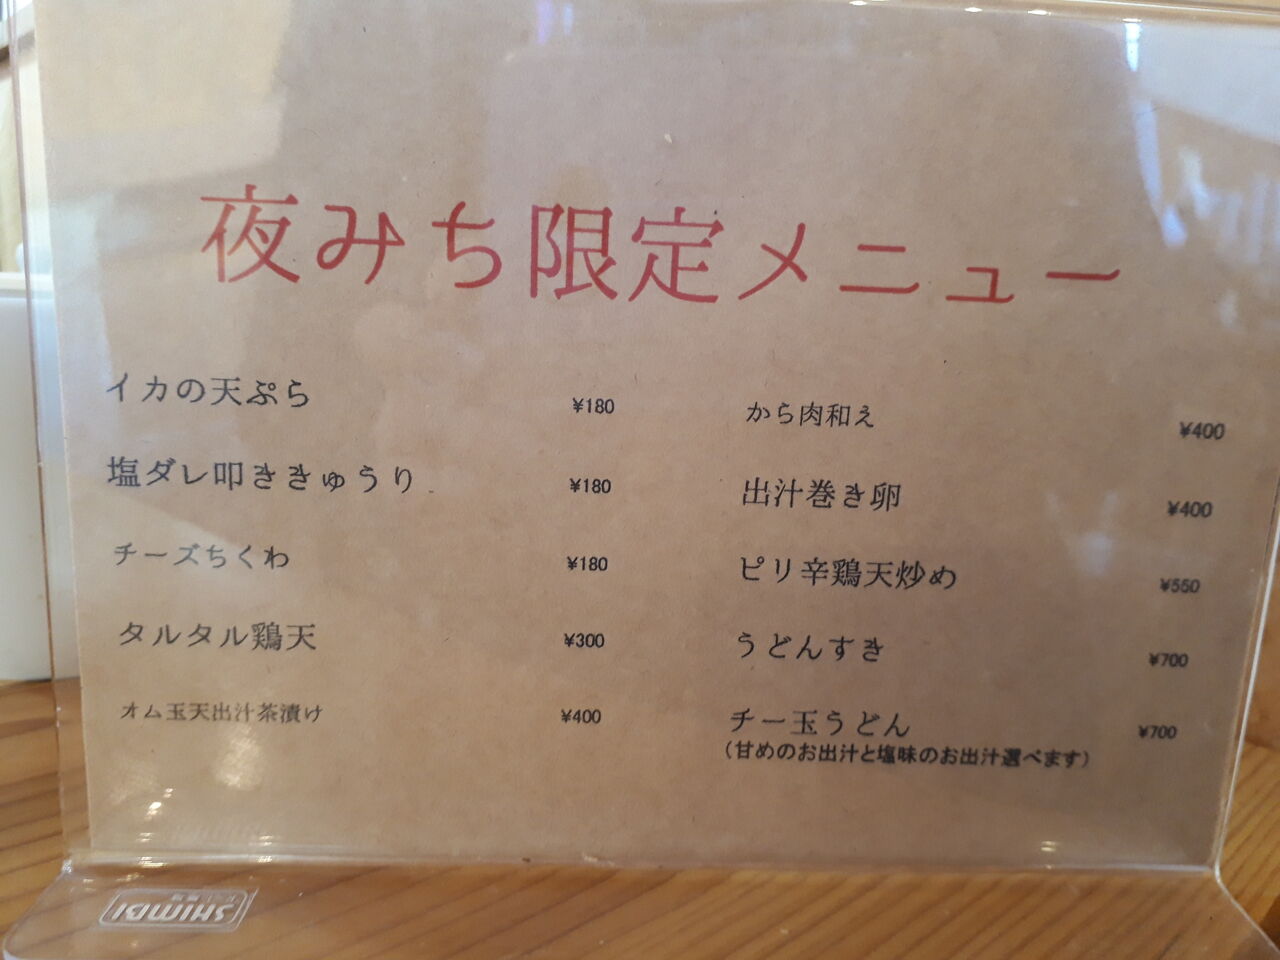 夜みち限定メニュー
イカの天ぷら ¥180
塩ダレ叩ききゅうり ¥180
チーズちくわ ¥180
タルタル鶏天 ¥300
オム玉天出汁茶漬け ¥400
から肉和え ¥400
出汁巻き卵 ¥400
ピリ辛鶏天炒め ¥550
うどんすき ¥700
チー玉うどん ¥700
(甘めのお出汁と塩味のお出汁選べます)
SHIMBI